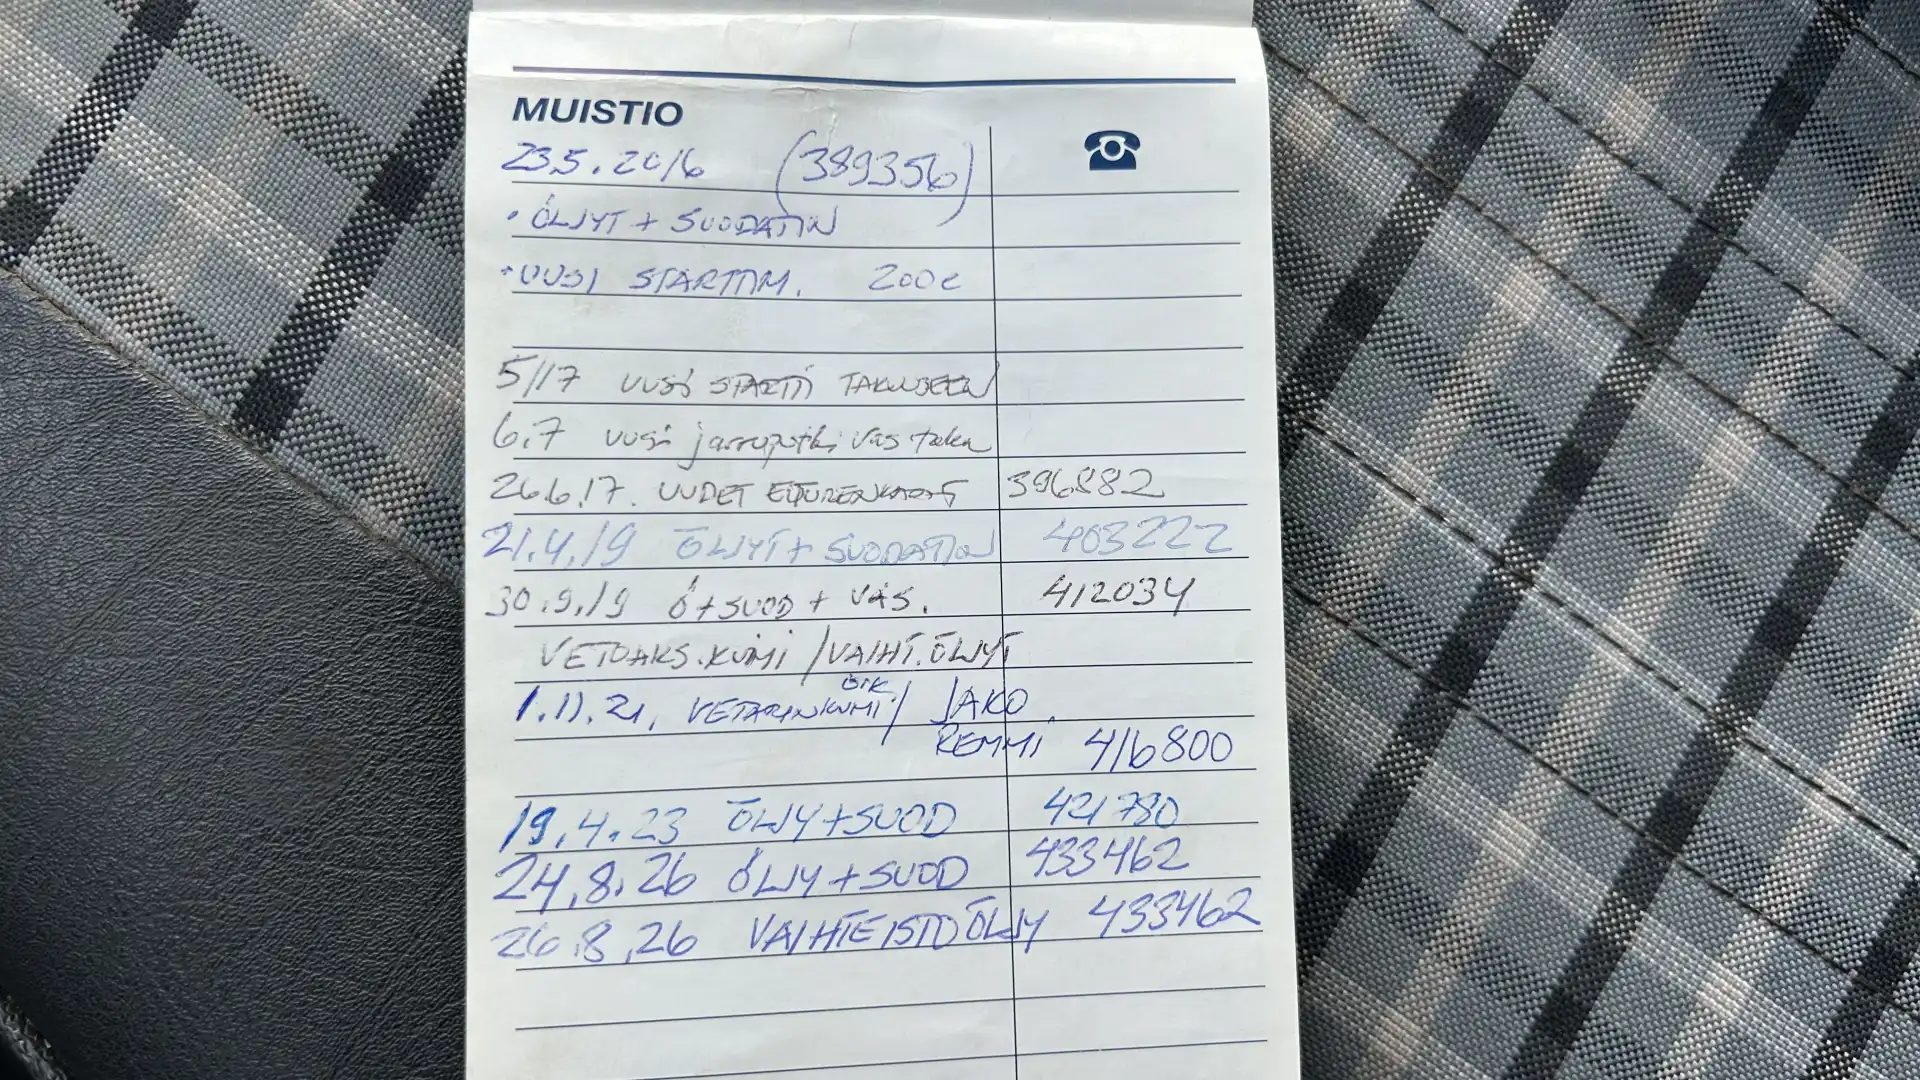 MUISTIO
23.5.2016 (389356)
• ÖLJYT + SUODATIN
• UUSI STARTTIM. 200e
5/17 UUSI STARTTI TAKUUSEEN
6.7 uusi jarruputki vas taka
26.6.17. UUDET ETURENKAAT 396882
21.4.19 ÖLJYT + SUODATIN 403222
30.9.19 Ö+SUOD + VAS. 412034
VETOAKS.KUMI / VAIHT.ÖLJYT
OIK
1.11.21. VETARINKUMI / JAKO
REMMI 416800
19.4.23 ÖLJY+SUOD 421780
24.8.26 ÖLJY+SUOD 433462
26.8.26 VAIHTEISTOÖLJY 433462